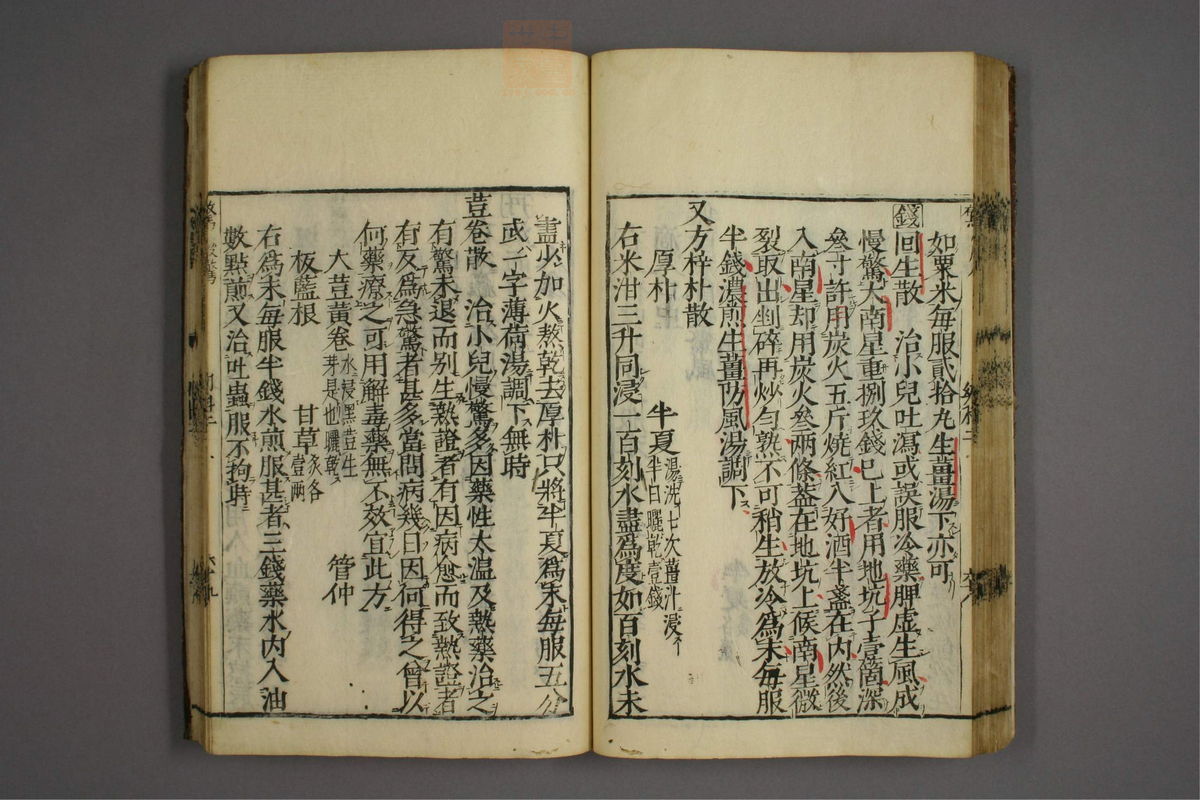 如粟米每服貳拾丸生薑湯下亦可
錢回生散　治小兒吐瀉或誤服冷藥脾虚生風成
慢驚大南星重捌玖錢已上者用地坑子壹箇深
叄寸許用炭火五斤燒紅入好酒半盞在內然後
入南星却用炭火叄兩條蓋在地坑上候南星微
裂取出剉碎再炒勻熟不可稍生放冷爲末每服
半錢濃煎生薑防風湯調下
又方梓朴散
厚朴　半夏湯洗七次薑汁浸半日曬乾壹錢
右米泔三升同浸一百刻水盡爲度如百刻水未
盡少加火熬乾去厚朴只將半夏爲末每服五分
或一字薄荷湯調下無時
荳卷散　治小兒慢驚多因藥性太温及熱藥治之
有驚未退而别生熱證者有因病愈而致熱證者
有反爲急驚者甚多當問病幾日因何得之曾以
何藥療之可用解毒藥無不效宜此方
大荳黃卷水浸黑荳生芽是也曬乾　管仲
板藍根　甘草炙各壹兩
右爲末每服半錢水煎服甚者三錢藥水內入油
數點煎又治吐蟲服不拘時